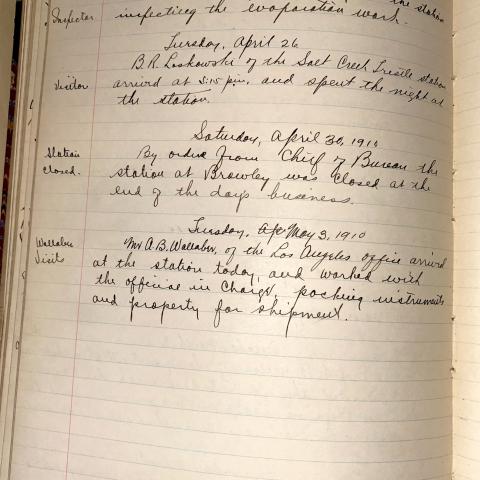 the station
Inspector inspecting the evaporation work.
Tuesday, April 26
B.R. Laskowski of the Salt Creek Trestle station
Visitor arrived at 5:15 p.m. and spent the night at
the station.
Saturday, April 30, 1910
Station By order from Chief of Bureau the
closed. station at Brawley was closed at the
end of the day's business.
Tuesday, May 3, 1910
Wallaber Mr A.B. Wallaber, of the Los Angeles office arrived
Visits at the station today, and worked with
the official in Charge, packing instruments
and property for shipment.